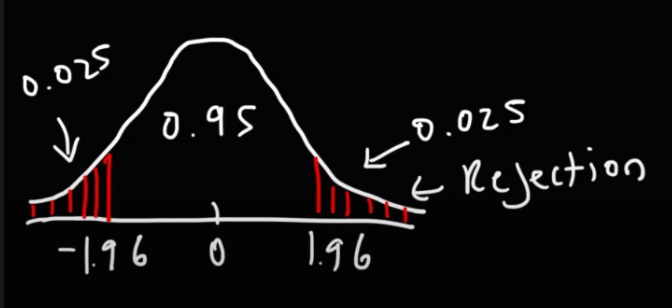 0.025
0.95
0.025
Rejection
-1.96 0 1.96